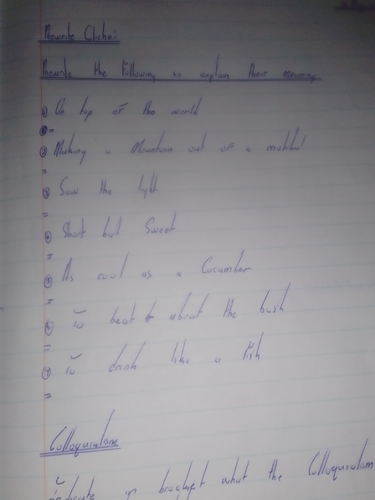 Rewrite Cliche:
Rewrite the following to explain their meaning
① On top of the world
② Making a Mountain out of a molehill
③ Saw the light
④ Short but Sweet
⑤ As cool as a Cucumber
⑥ To beat about the bush
⑦ To drink like a Fish
Colloquialisms
indicate in bracket what the Colloquialism